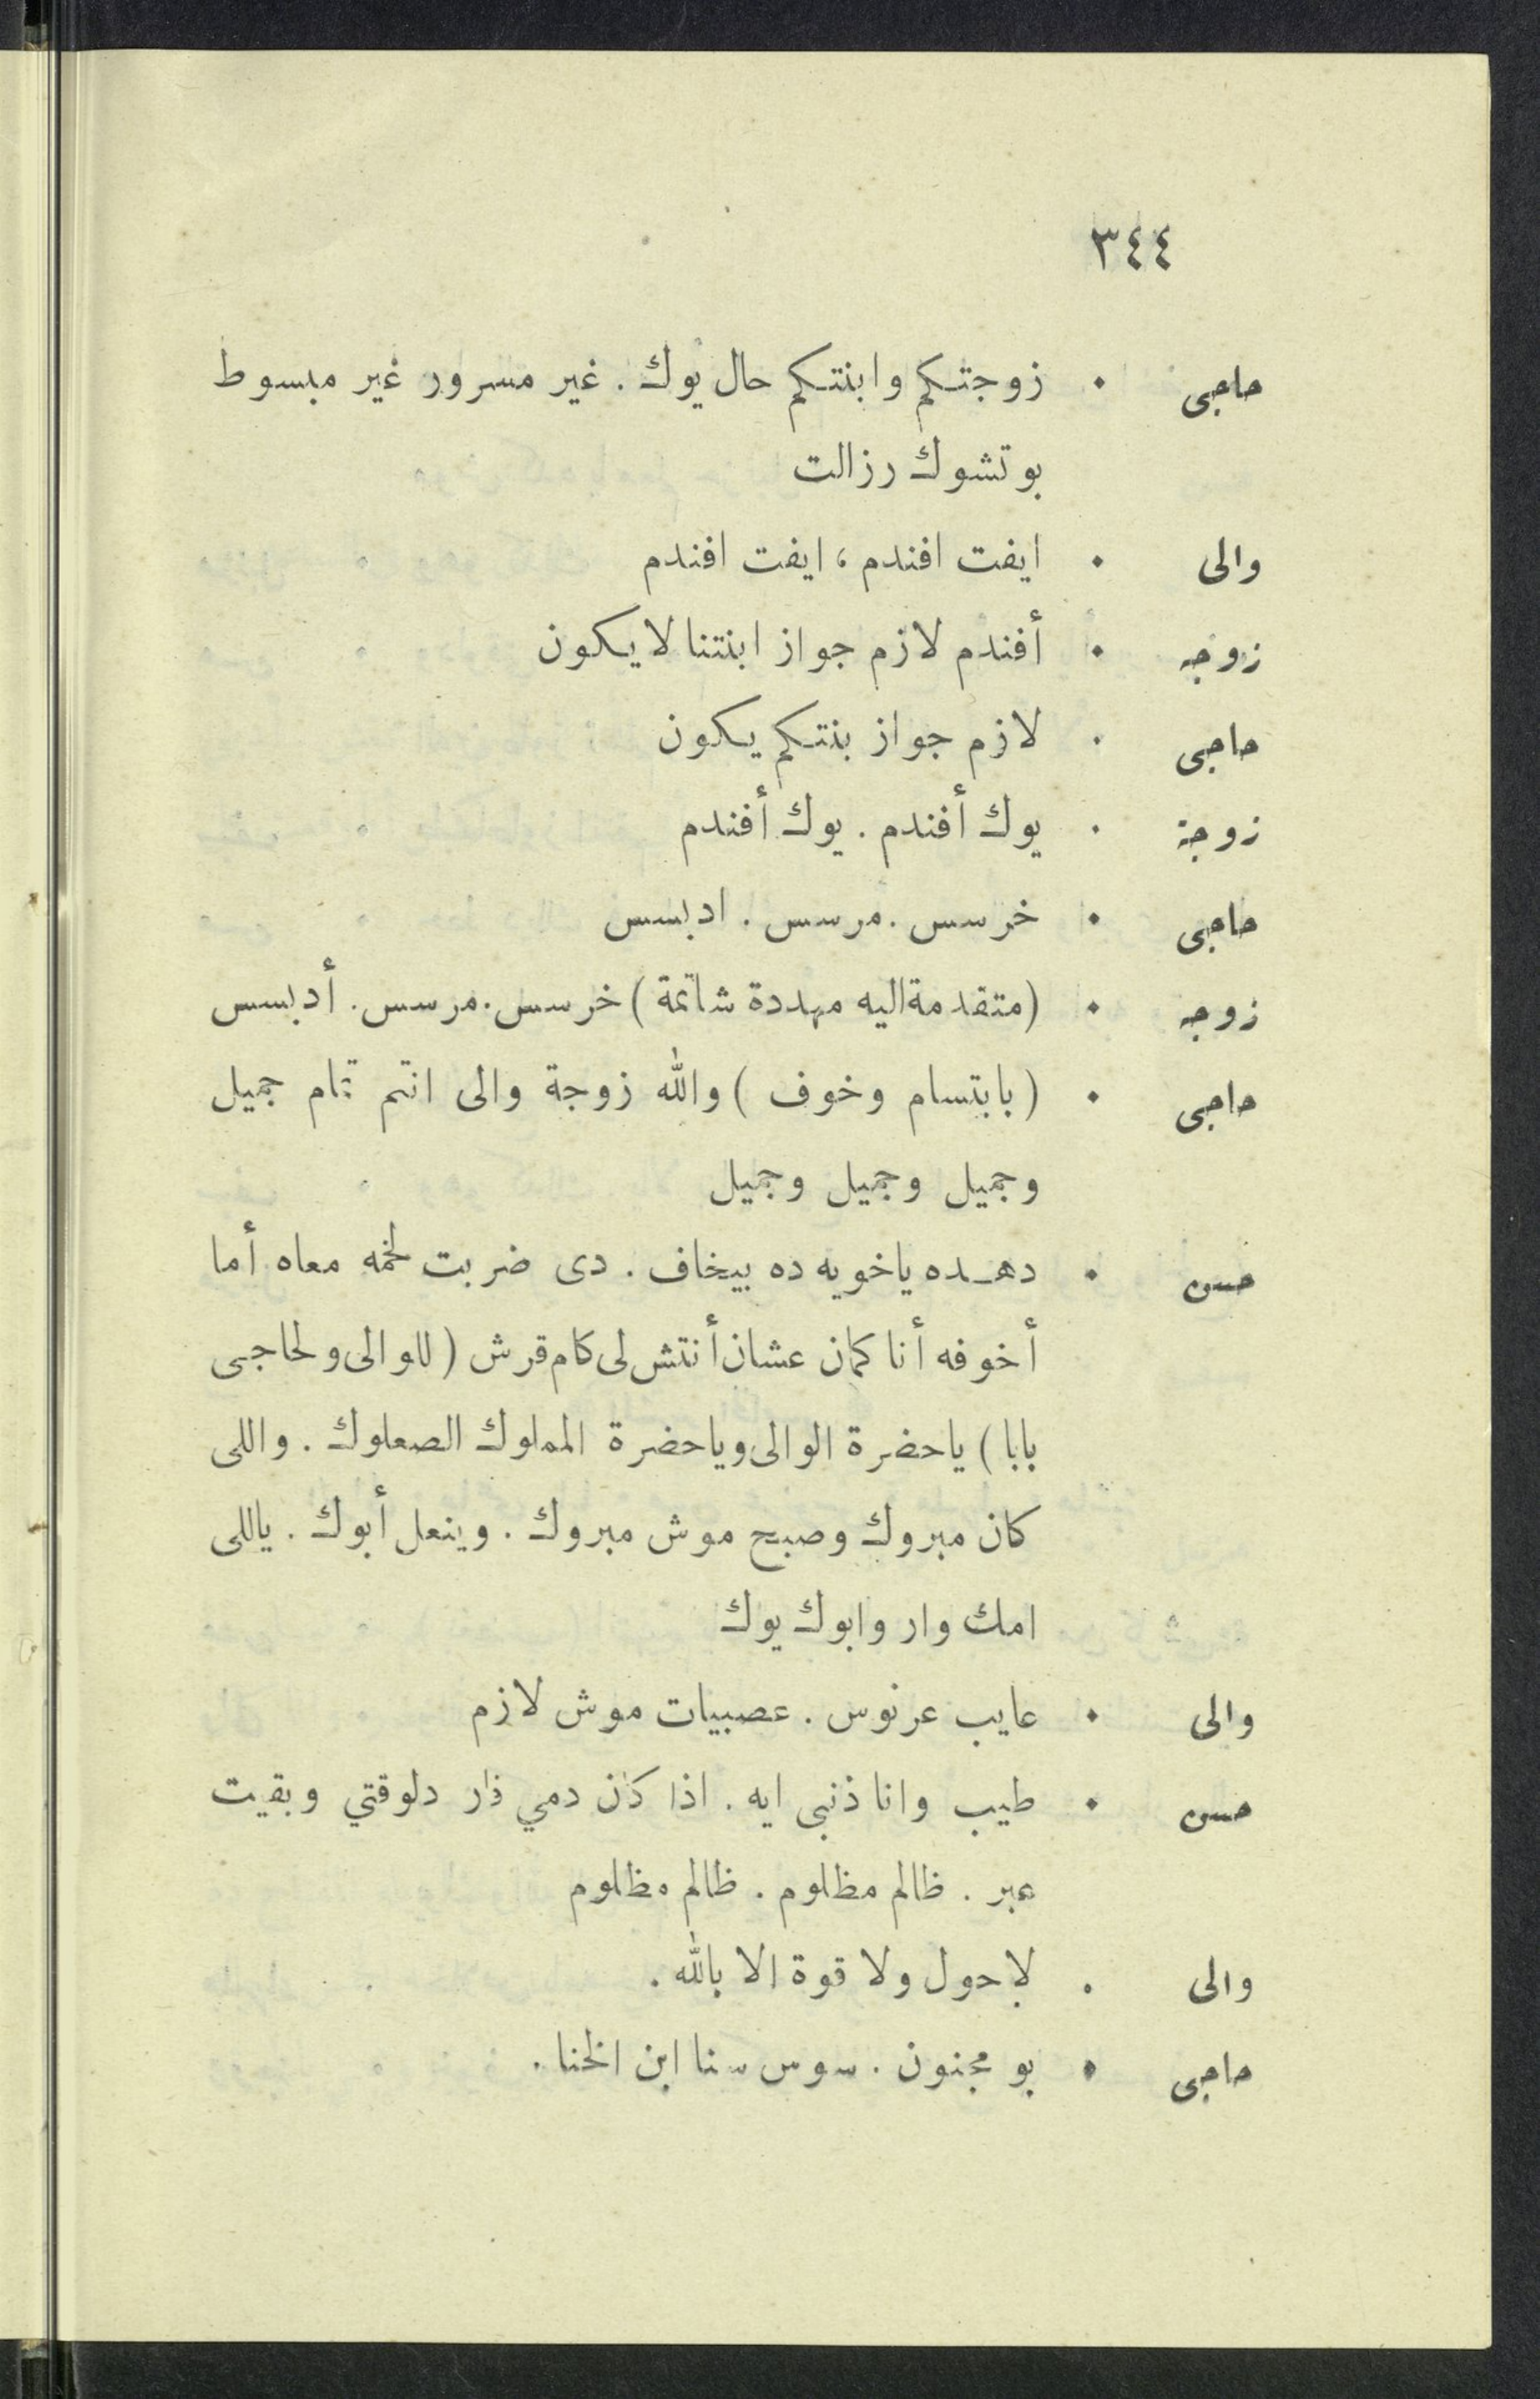 ٣٤٤
حاجى . زوجتكم وابنتكم حال يوك . غير مسرور غير مبسوط
بوتشوك رزالت
والى . ايفت افندم ، ايفت افندم
زوجه . أفندم لازم جواز ابنتنا لايكون
حاجى . لازم جواز بنتكم يكون
زوجة . يوك أفندم . يوك أفندم
حاجى . خرسس . مرسس . ادبسس
زوجه . (متقدمة اليه مهددة شاتمة) خرسس . مرسس . أدبسس
حاجى . (بابتسام وخوف ) والله زوجة والى انتم تمام جميل
وجميل وجميل وجميل
حسن . دهـده ياخويه ده بيخاف . دى ضربت لخمه معاه أما
أخوفه أنا كمان عشان أنتش لى كام قرش (للوالى ولحاجى
بابا) ياحضرة الوالى وياحضرة المملوك الصعلوك . واللى
كان مبروك وصبح موش مبروك . وينعل أبوك . ياللى
امك وار وابوك يوك
والى . عايب عرنوس . عصبيات موش لازم
حسن . طيب وانا ذنبى ايه . اذا كان دمي فار دلوقتي وبقيت
عبر . ظالم مظلوم . ظالم مظلوم
والى . لاحول ولا قوة الا بالله .
حاجى . بو مجنون . سوس سنا ابن الخنا .